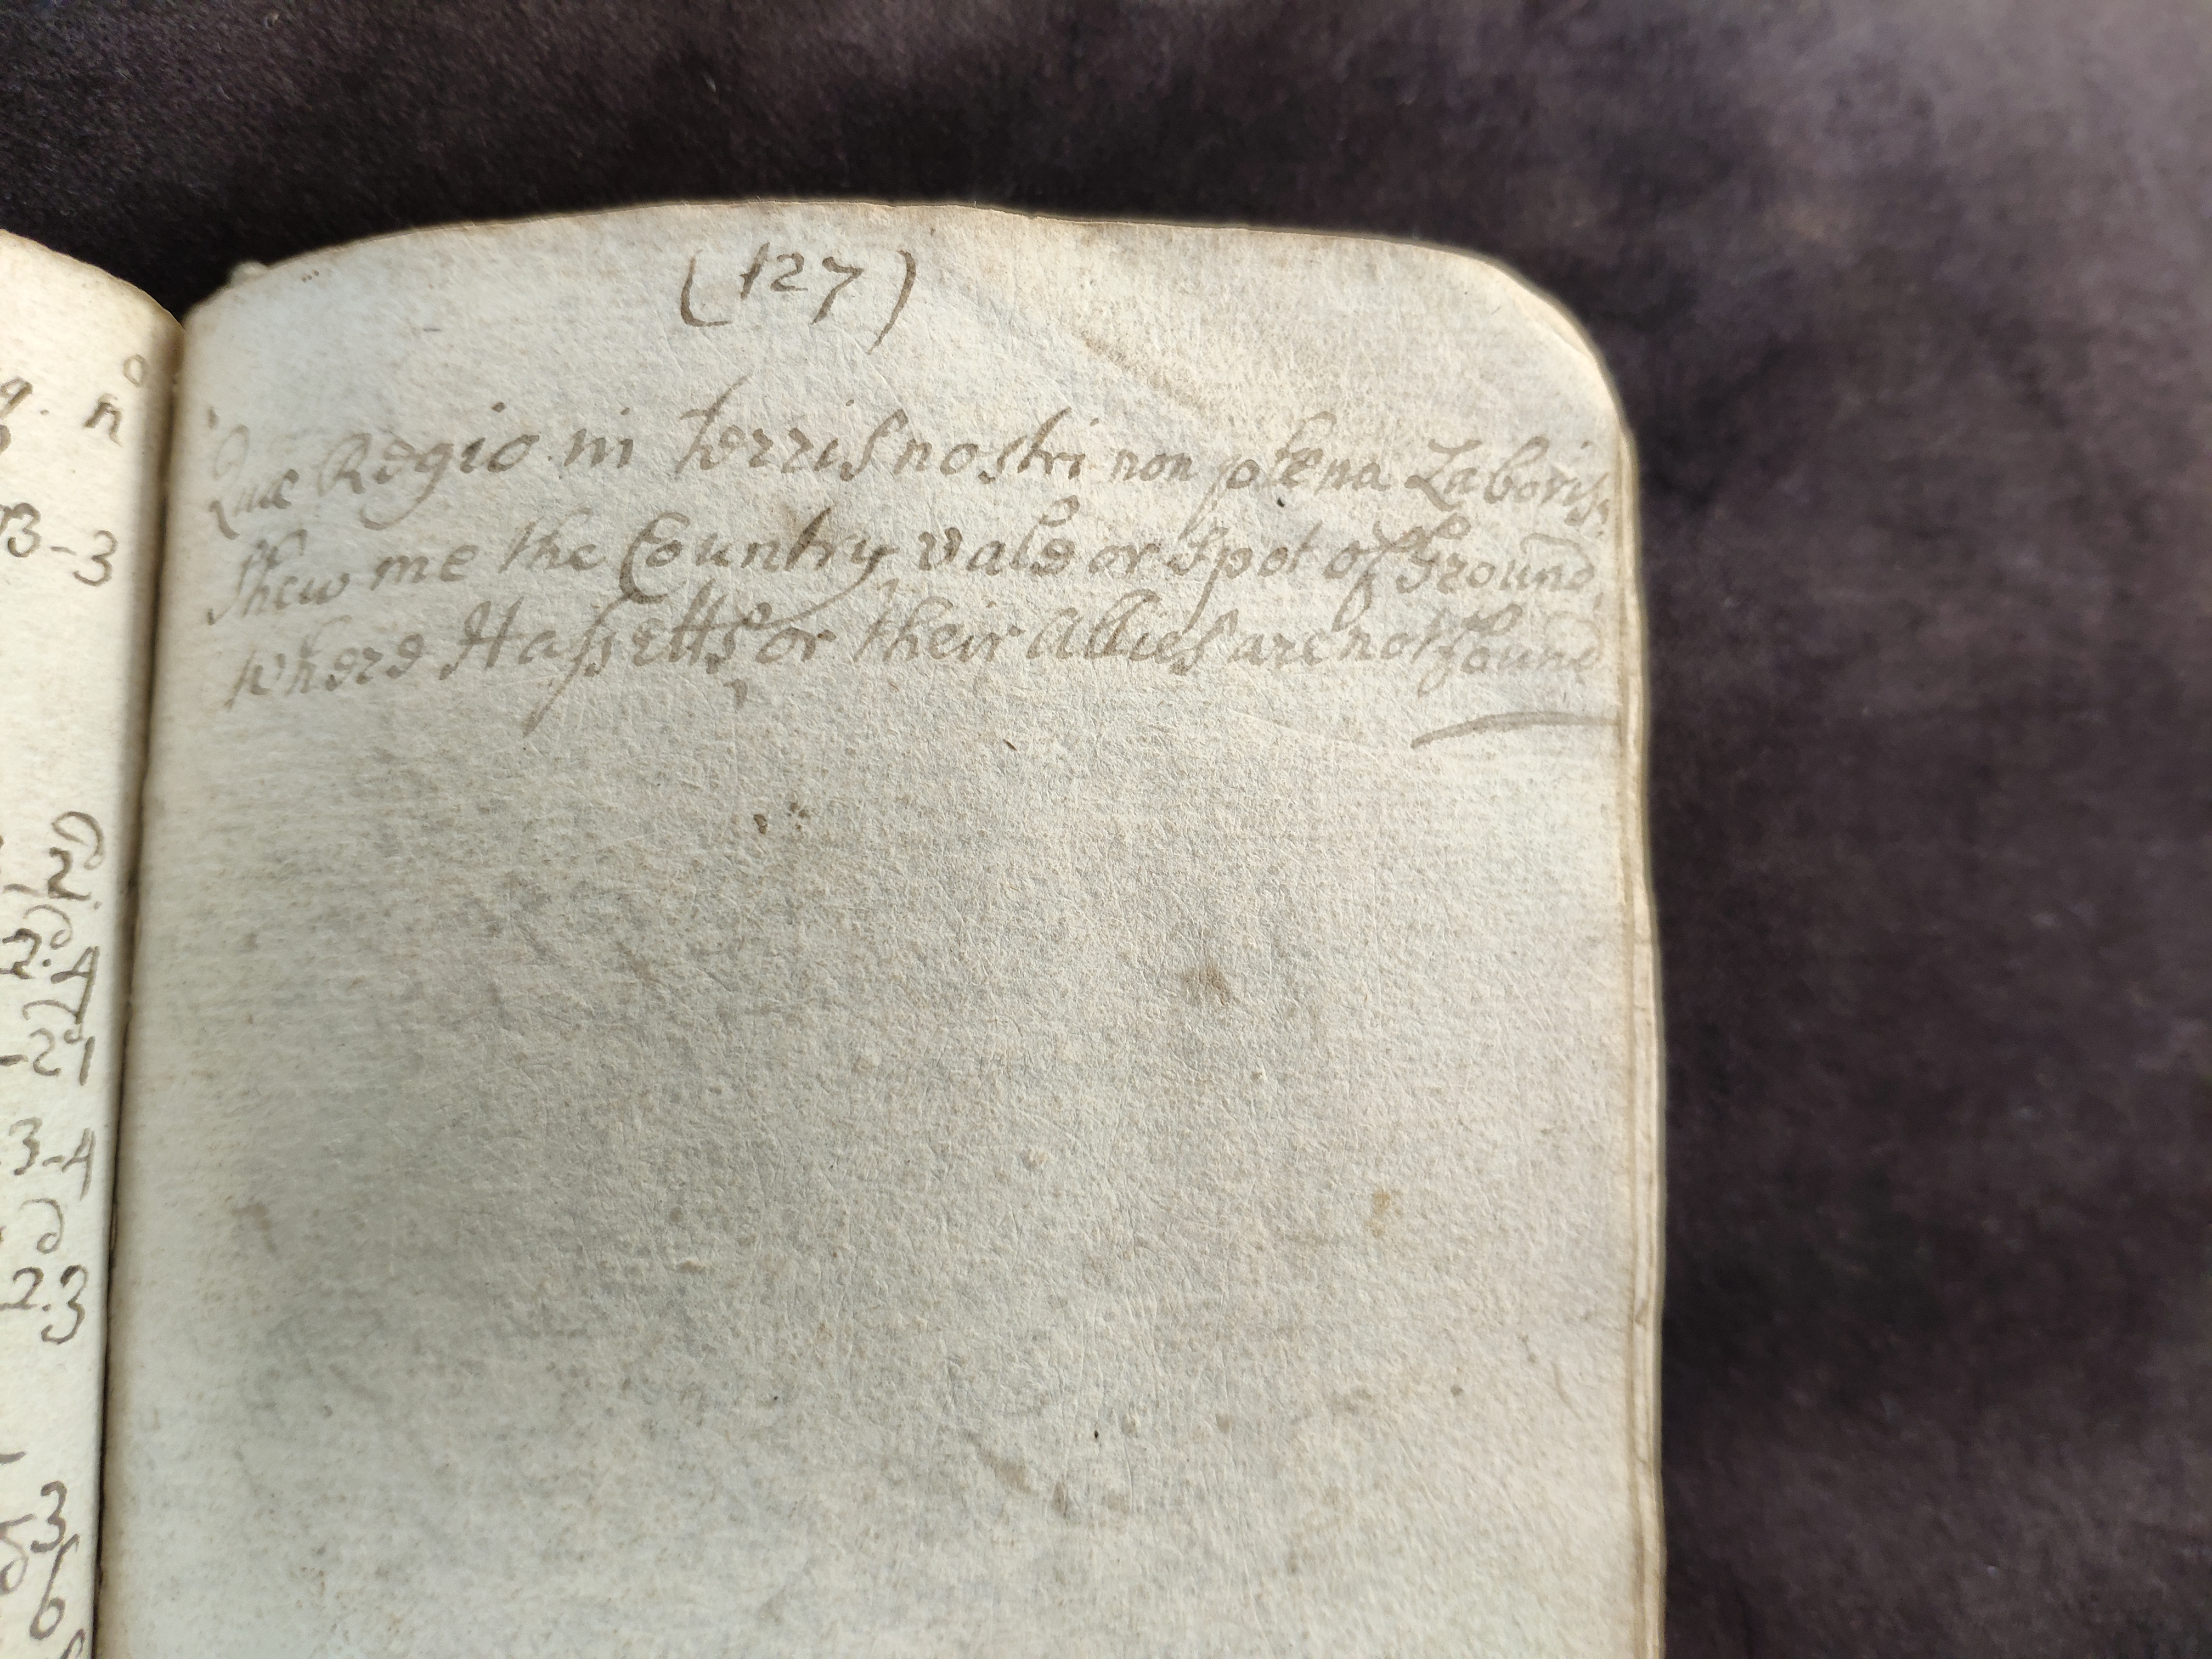 (127)
Quæ Regio in terris nostri non plena Laboris.
Shew me the Country, vale or Spot of Ground,
where Hassetts or their Allies are not found
9. no
3-3
2.4
-29
3-4
2.3
3
6